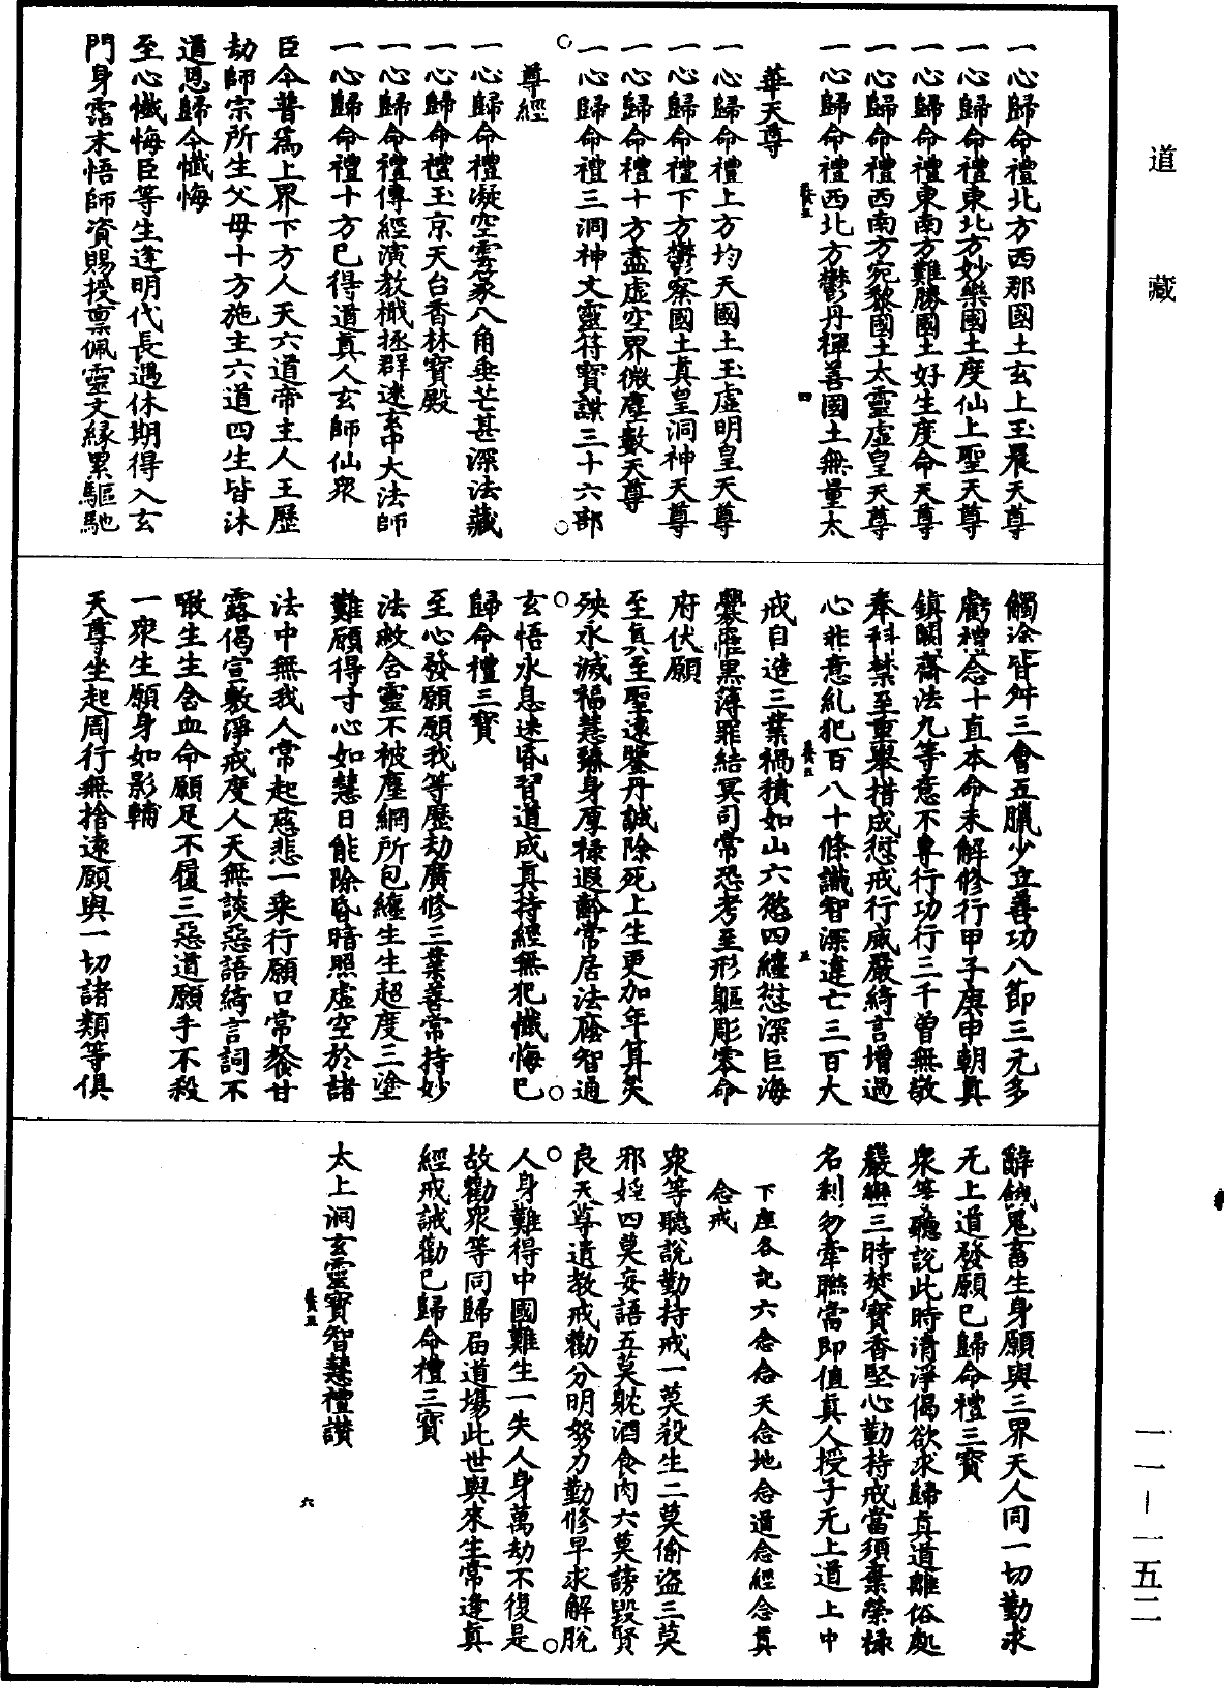 道藏
一一－一五二
一心歸命禮北方西那國土玄上玉晨天尊
一心歸命禮東北方妙樂國土度仙上聖天尊
一心歸命禮東南方難勝國土好生度命天尊
一心歸命禮西南方宛黎國土太靈虛皇天尊
一心歸命禮西北方鬱丹禪善國土無量太
華天尊
一心歸命禮上方均天國土玉虛明皇天尊
一心歸命禮下方鬱察國土真皇洞神天尊
一心歸命禮十方盡虛空界微塵數天尊
一心歸命禮三洞神文靈符寶謀三十六部
尊經
一心歸命禮凝空雲篆八角垂芒甚深法藏
一心歸命禮玉京天台香林寶殿
一心歸命禮傳經演教檝拯群迷玄中大法師
一心歸命禮十方已得道真人玄師仙眾
臣今普為上界下方人天六道帝主人王歷
劫師宗所生父母十方施主六道四生皆沐
道恩歸命懺悔
至心懺悔臣等生逢明代長遇休期得入玄
門身霑末悟師資賜授稟佩靈文緣累驅馳
觸途皆舛三會五臘少立善功八節三元多
虧禮念十直本命未解修行甲子庚申朝真
鎮闕齋法九等意不專行功行三千曾無敬
奉科禁至重舉措成愆戒行威嚴綺言增過
心非意糺犯百八十條識智深違亡三百大
戒自造三業禍積如山六慾四纏愆深巨海
釁罹黑簿罪結冥司常恐考至形軀彫零命
府伏願
至真至聖遠鑒丹誠除死上生更加年筭災
殃永滅福慧臻身厚祿遐齡常居法廕智通
玄悟永息迷昏習道成真持經無犯懺悔已
歸命禮三寶
至心發願願我等歷劫廣修三業善常持妙
法救含靈不被塵網所包纏生生超度三塗
難願得寸心如慧日能除昏暗照虛空於諸
法中無我人常起慈悲一乘行願口常餐甘
露偈宣敷淨戒度人天無談惡語綺言詞不
噉生生含血命願足不履三惡道願手不殺
一眾生願身如影輔
天尊坐起周行無捨遠願與一切諸類等俱
辭餓鬼畜生身願與三界天人同一切勤求
无上道發願已歸命禮三寶
眾等聽說此時清淨偈欲求歸真道離俗處
嚴巒三時焚寶香堅心勤持戒當須棄榮祿
名利勿牽聯當即值真人授子无上道上中
下座各記六念念天念地念道念經念真
念戒
眾等聽說勤持戒一莫殺生二莫偷盜三莫
邪婬四莫妄語五莫躭酒食肉六莫謗毀賢
良天尊遺教戒勸分明努力勤修早求解脫
人身難得中國難生一失人身萬劫不復是
故勸眾等同歸屆道場此世與來生常逢真
經戒誡勸已歸命禮三寶
太上洞玄靈寶智慧禮讚
四
五
六